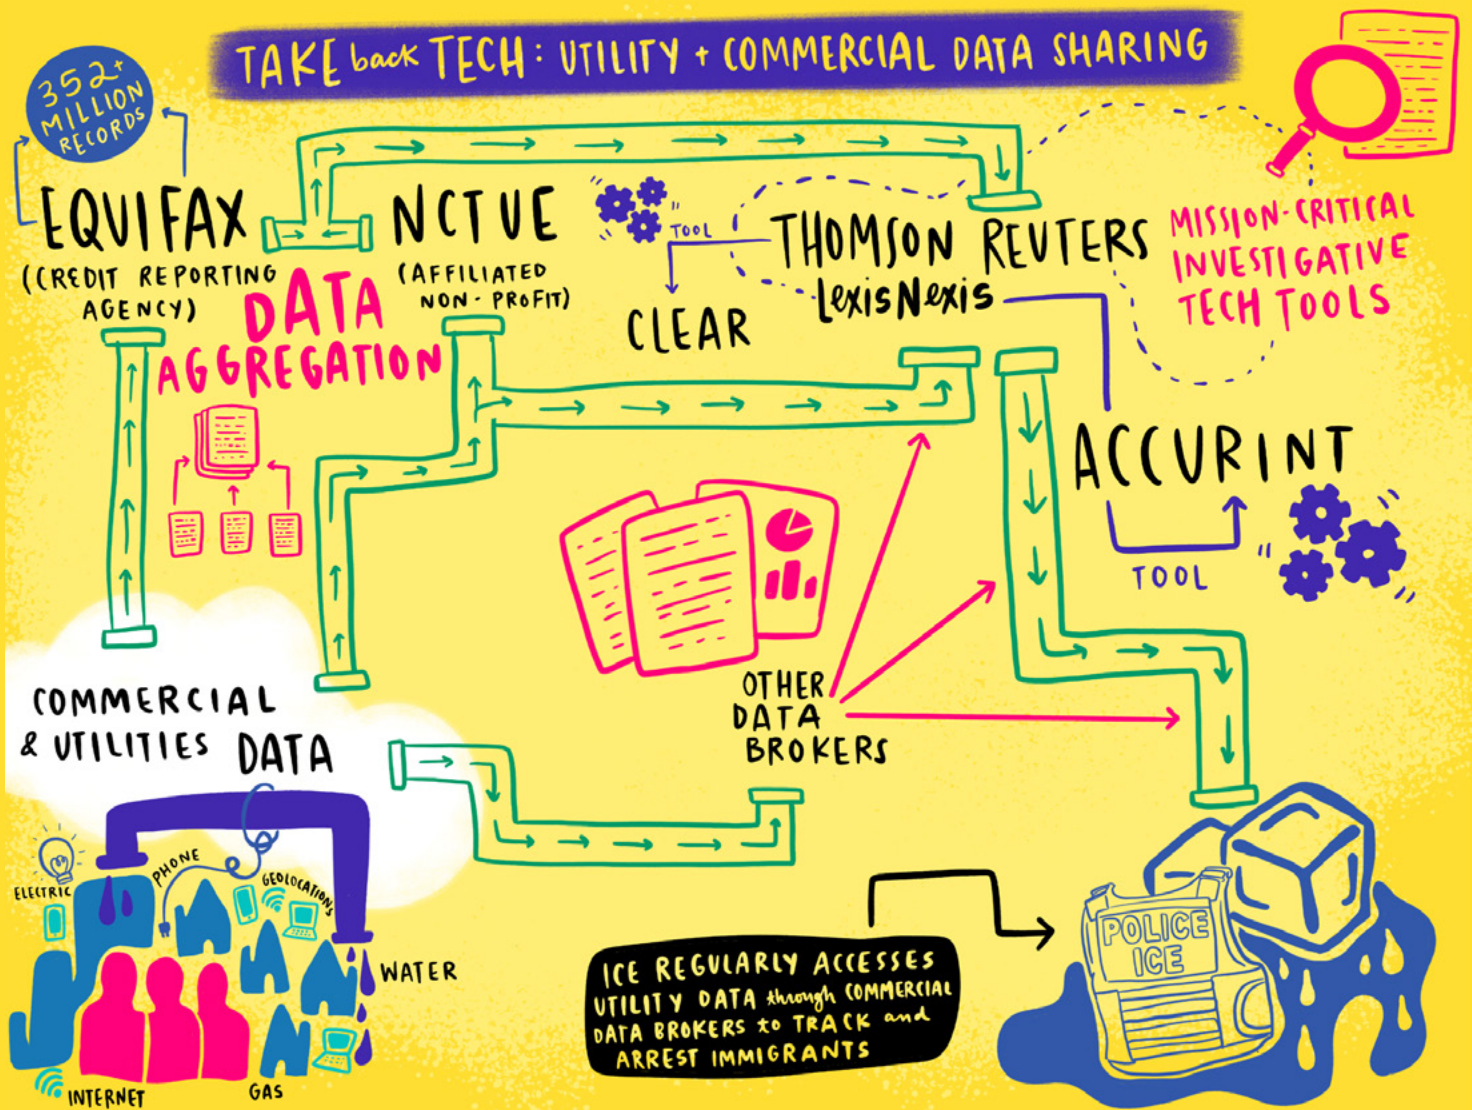 TAKE back TECH: UTILITY + COMMERCIAL DATA SHARING
352+
MILLION
RECORDS
EQUIFAX
(CREDIT REPORTING
AGENCY)
NCTUE
(AFFILIATED
NON-PROFIT)
DATA
AGGREGATION
TOOL
CLEAR
THOMSON REUTERS
LexisNexis
MISSION-CRITICAL
INVESTIGATIVE
TECH TOOLS
ACCURINT
TOOL
OTHER
DATA
BROKERS
COMMERCIAL
& UTILITIES DATA
ELECTRIC
PHONE
GEOLOCATIONS
WATER
INTERNET
GAS
ICE REGULARLY ACCESSES
UTILITY DATA through COMMERCIAL
DATA BROKERS to TRACK and
ARREST IMMIGRANTS
POLICE
ICE